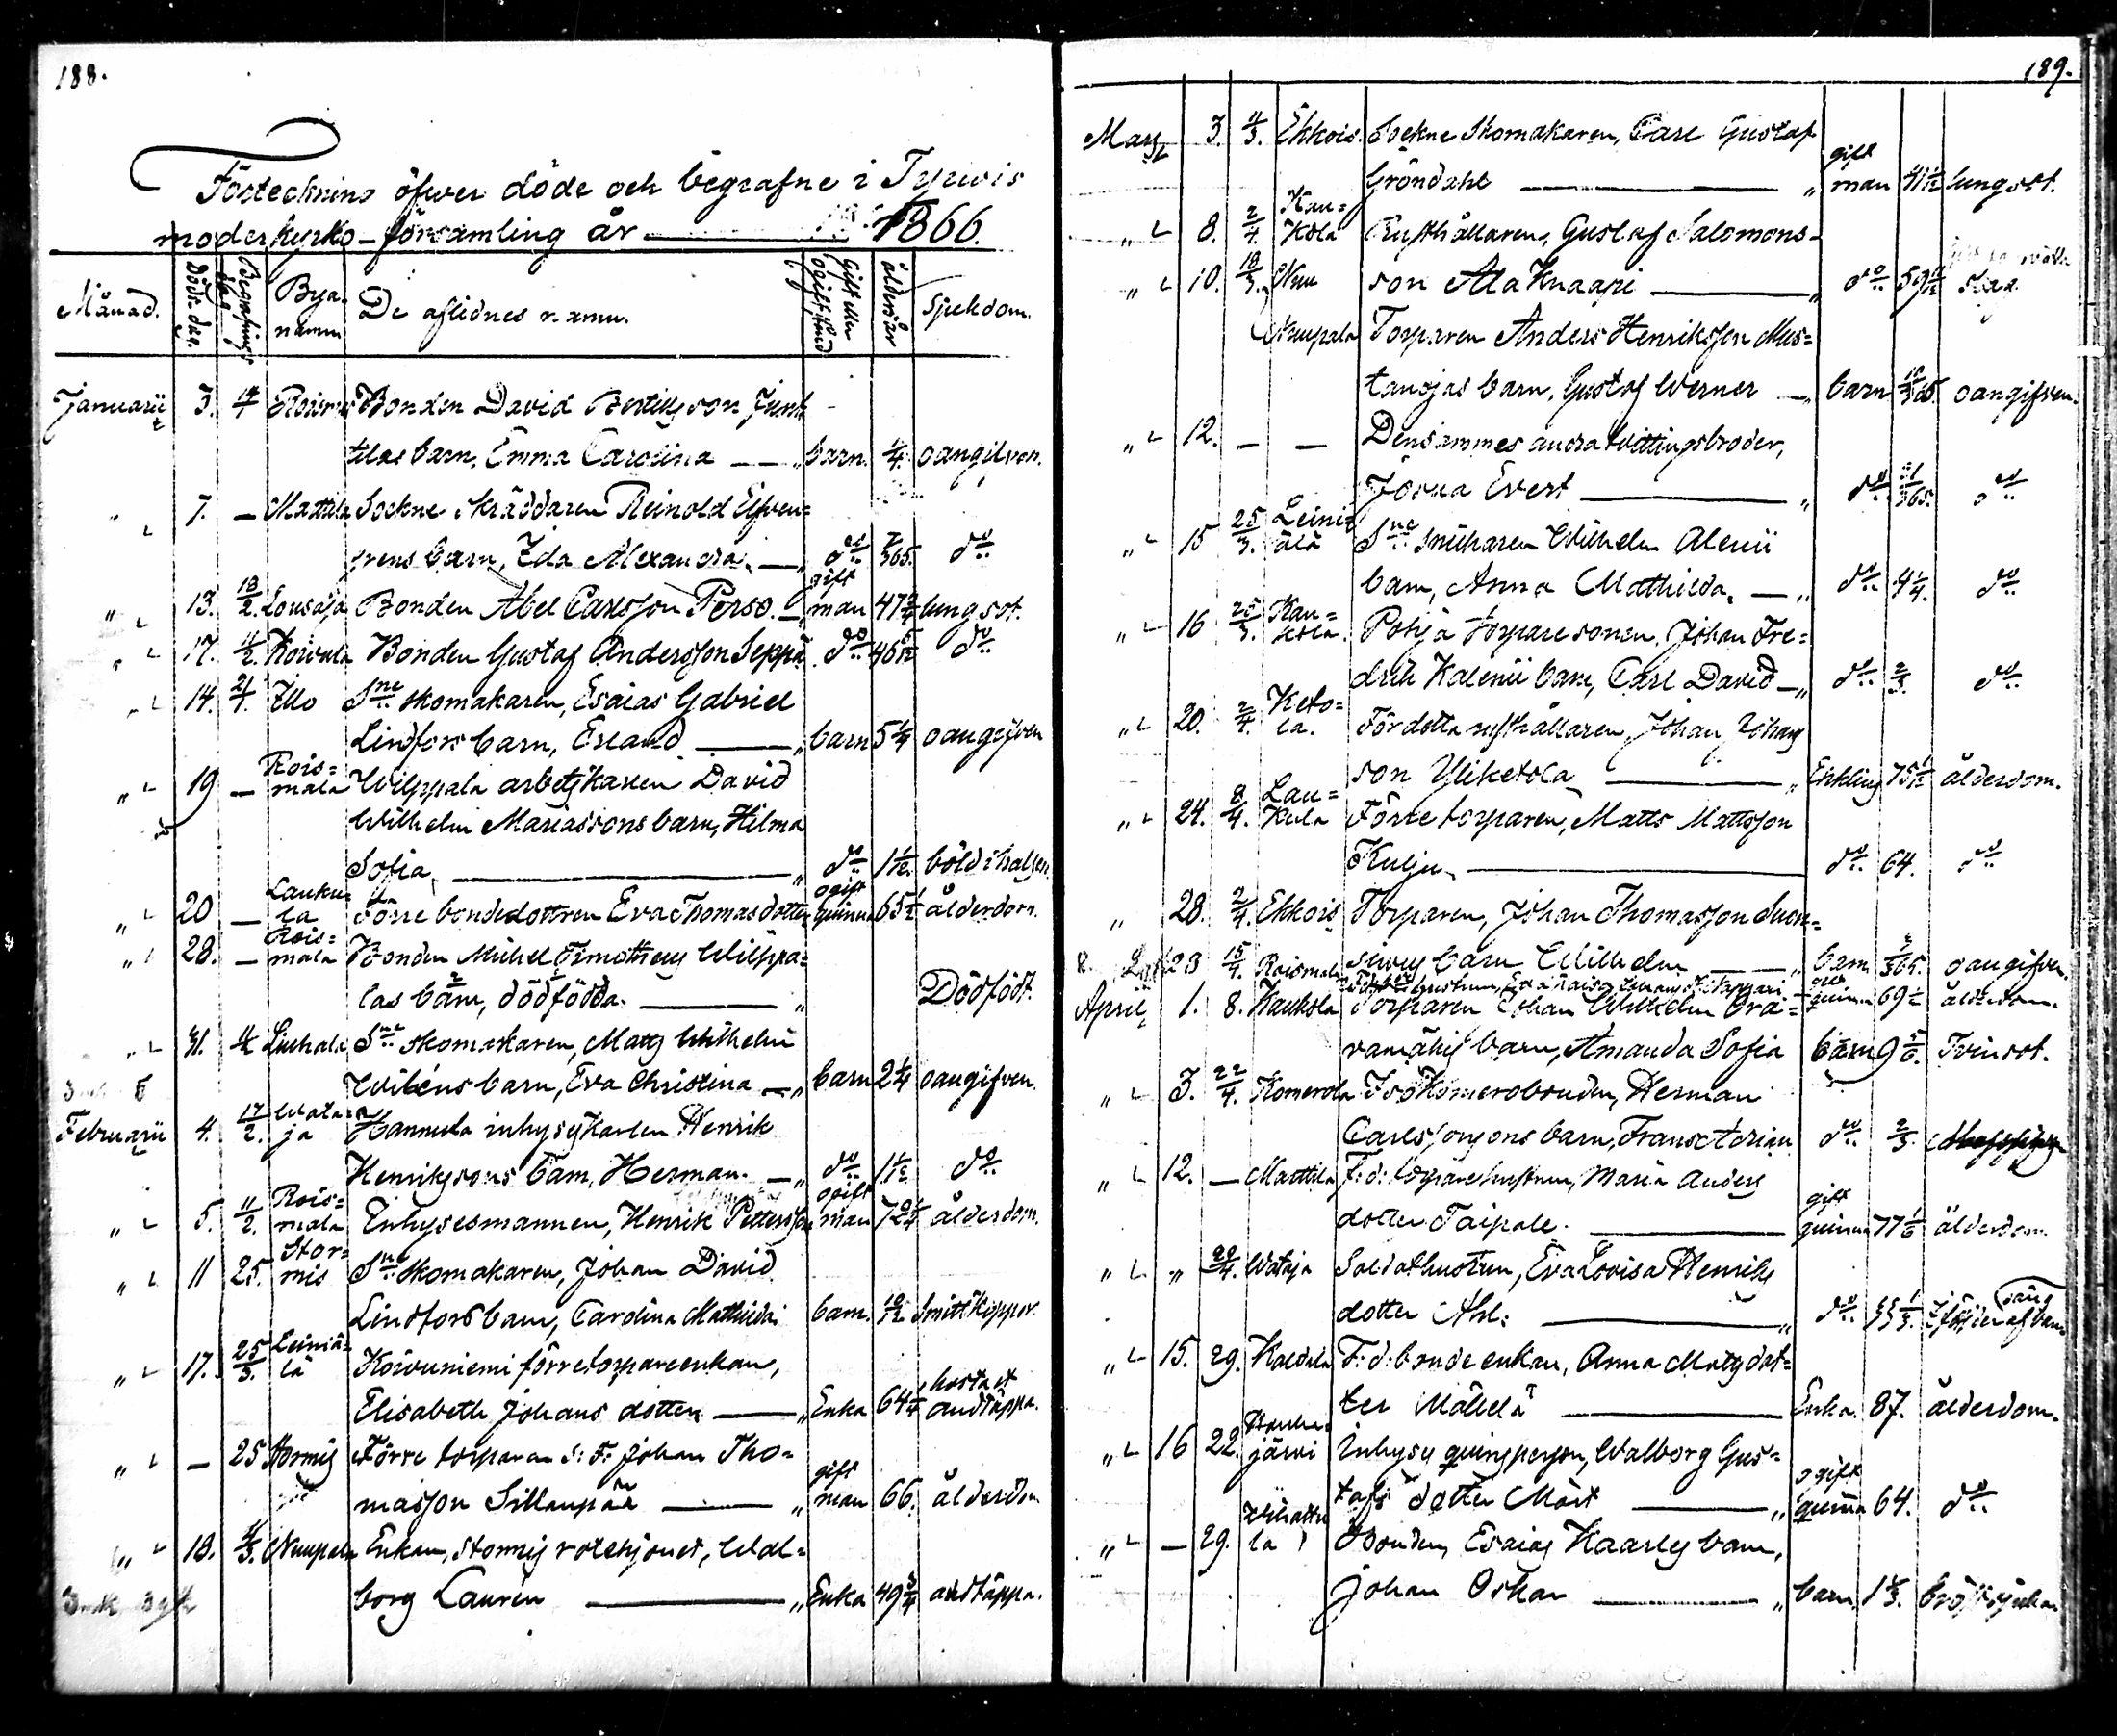 188.
Förteckning öfwer döde och begrafne i Tyrwis
moderkyrko-församling år 1866.
Månad. Döds-dag. Begrafnings dag Bya namn De aflidnes namn. Gift eller ogift stånd ålder i år Sjukdom.
Januarii 3. 14/1 Bonden David Bertilsson Junt
tilas barn, Emma Carolina — „ barn. 1/4. oangifven.
„ 7. — Mattila Sockne Skräddaren Reinold Elfven=
grens barn, Ida Alexandra. — „ do 7/365. do
„ 13. 18/2. Lousaja Bonden Abel Carlsson Perso. — gift man 47 3/4 lungsot.
„ 17. 11/2. Koivula Bonden Gustaf Andersson Seppä do 46 5/12 do
„ 14. 21/1. Illo Sne skomakaren, Esaias Gabriel
Lindfors barn, Erland — „ barn 5 1/4 oangifven
„ 19 — Rois=mala Wilppala arbetskarlen David
Wilhelm Mariassons barn, Hilma
Sofia, — „ do 1 1/12. böld i halsen
„ 20 — Lauku=la Förre bondedottren Eva Thomasdotter ogift quinna 65 1/2 ålderdom.
„ 28. — Rois=mala Bonden Michel Timotheus Wilppa=
las barn, dödfödda. — „ Dödfödt.
„ 31. 11/2 Liuhala Sne skomakaren, Matts Wilhelm
Wiléns barn, Eva Christina — „ barn 2 1/4 oangifven.
Februarii 4. 17/2. Wata=ja Hannula inhyseskarlen Henrik
Henrikssons barn, Herman. — „ do 1 1/12 do
„ 5. 11/2. Rois=mala Inhysesmannen, Henrik Pettersson ogift man 72 3/4 ålderdom.
„ 11 25. Stor=mis Sne skomakaren, Johan David
Lindfors barn, Carolina Mathilda. barn. 10/12 Smittkoppor.
„ 17. 25/3. Leiniä=lä Koivuniemi förre torpareenkan,
Elisabeth Johans dotter — „ Enka 64 1/4 hosta et andtäppa.
„ — 25 Stormis Förre torparen S: F: Johan Tho=
masson Sillanpää — „ gift man 66. ålderdom
„ 18. 4/3. Nuupala Enkan, Stormis rotehjonet, Wal=
borg Laurén — „ Enka 49 3/4 andtäppa.
189.
Mars 3. 4/3. Ekkois. Sockne Skomakaren, Carl Gustaf
Gröndahl — „ gift man 41 1/12 lungsot.
„ 8. 2/4. Kau=kola Rusthållaren, Gustaf Salomons-
„ 10. 18/3. son Ala Knaapi — „ do 59
Nuupala Torparen Anders Henriksson Mus=
tanojas barn, Gustaf Werner — „ barn 10/365. oangifven.
„ 12. — — Densammes andra twillingsbroder,
Josua Evert — „ do 11/365. do
„ 15 25/3. Leini=älä Sne snickaren Wilhelm Alenii
barn, Anna Mathilda. — „ do 4 1/4. do
„ 16 25/3. Kau=kola. Pohja torparesonen, Johan Fre=
drik Kalenii barn, Carl David — „ do 2/3. do
„ 20. 2/4. Keto=la. Fördetta rusthållaren, Johan Johans
son Yliketola — „ Enkling 75 1/12 ålderdom.
„ 24. 8/4. Lau=kula Förre torparen, Matts Mattsson
Kulju, — do 64. do
„ 28. 2/4. Ekkois Torparen, Johan Thomasson Suon=
23 15/4. Roismala barn Wilhelm — „ barn 2/365. oangifven.
April 1. 8. Kaukola Torparen Johan Wilhelm Ora= quinna 69 1/2 ålderdom.
barn, Amanda Sofia barn 9 5/6. Tvinsot.
„ 3. 22/4. Komerola Iso Komerobonden, Herman
Carlssonsons barn, Frans Adrian do 2/3.
„ 12. — Marttila F: d: torparehustrun, Maria Anders
dotter Taipale. — gift quinna 77 1/6 ålderdom.
„ „ 22/4. Wataja Soldathustrun, Eva Lovisa Henriks
dotter Ahl. — „ do
„ 15. 29. Kaldala F: d: bonde enkan, Anna Matsdot=
ter Mäkelä — Enka. 87. ålderdom.
„ 16 22. järwi Inhyses quinsperson, Walborg Gus=
tafs dotter Mört — „ ogift quinna 64. do
„ — 29. Bonden, Esaias Kaarles barn,
Johan Oskar — „ barn, 1 1/3. bröstsjukan